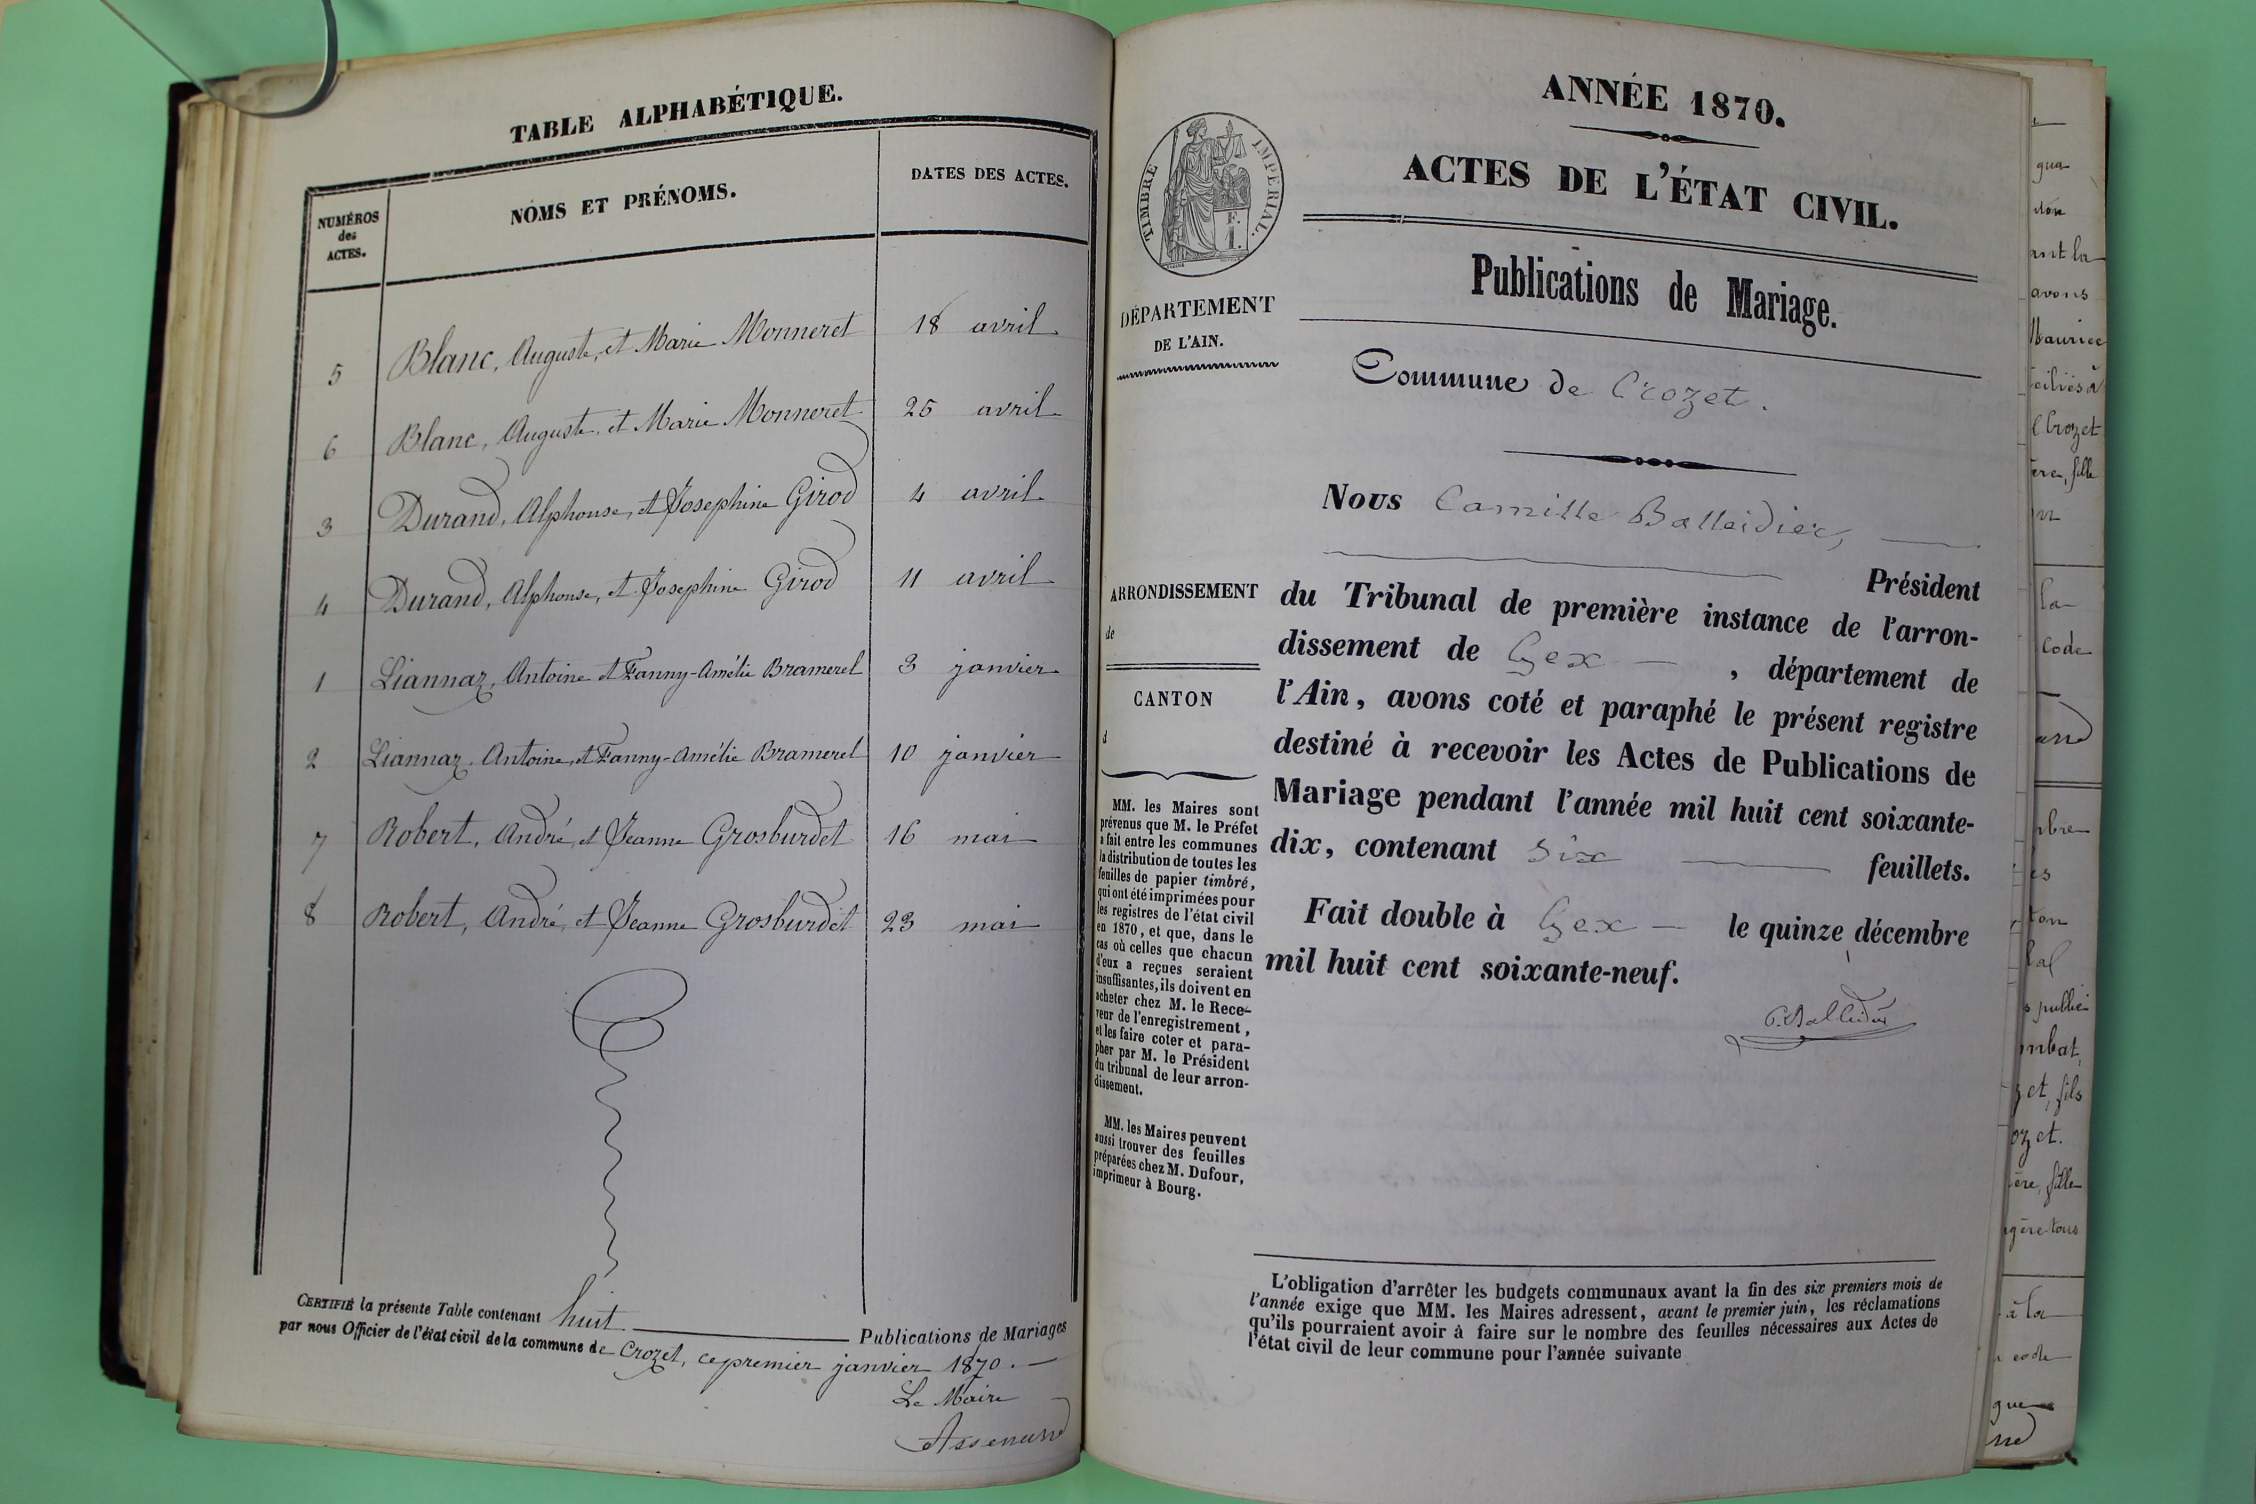 TABLE ALPHABÉTIQUE.
NUMÉROS
des
ACTES.
NOMS ET PRÉNOMS.
DATES DES ACTES.
5 Blanc, Auguste, et Marie Monneret 18 avril
6 Blanc, Auguste, et Marie Monneret 25 avril
3 Durand, Alphonse, et Josephine Girod 4 avril
4 Durand, Alphonse, et Josephine Girod 11 avril
1 Liannaz, Antoine et Fanny-Amélie Bramerel 3 janvier
2 Liannaz, Antoine, et Fanny-Amélie Bramerel 10 janvier
7 Robert, André, et Jeanne Grosburdet 16 mai
8 Robert, André, et Jeanne Grosburdet 23 mai
CERTIFIÉ la présente Table contenant huit Publications de Mariages
par nous Officier de l'état civil de la commune de Crozet, ce premier janvier 1870.
Le Maire
ANNÉE 1870.
ACTES DE L'ÉTAT CIVIL.
TIMBRE IMPÉRIAL.
Publications de Mariage.
DÉPARTEMENT
DE L'AIN.
Commune de Crozet.
Nous Camille Balleidier,
Président
du Tribunal de première instance de l'arron-
dissement de Gex, département de
l'Ain, avons coté et paraphé le présent registre
destiné à recevoir les Actes de Publications de
Mariage pendant l'année mil huit cent soixante-
dix, contenant six feuillets.
Fait double à Gex le quinze décembre
mil huit cent soixante-neuf.
C. Balleidier
ARRONDISSEMENT
de
CANTON
d
MM. les Maires sont
prévenus que M. le Préfet
a fait entre les communes
la distribution de toutes les
feuilles de papier timbré,
qui ont été imprimées pour
les registres de l'état civil
en 1870, et que, dans le
cas où celles que chacun
d'eux a reçues seraient
insuffisantes, ils doivent en
acheter chez M. le Rece-
veur de l'enregistrement,
et les faire coter et para-
pher par M. le Président
du tribunal de leur arron-
dissement.
MM. les Maires peuvent
aussi trouver des feuilles
préparées chez M. Dufour,
imprimeur à Bourg.
L'obligation d'arrêter les budgets communaux avant la fin des six premiers mois de
l'année exige que MM. les Maires adressent, avant le premier juin, les réclamations
qu'ils pourraient avoir à faire sur le nombre des feuilles nécessaires aux Actes de
l'état civil de leur commune pour l'année suivante